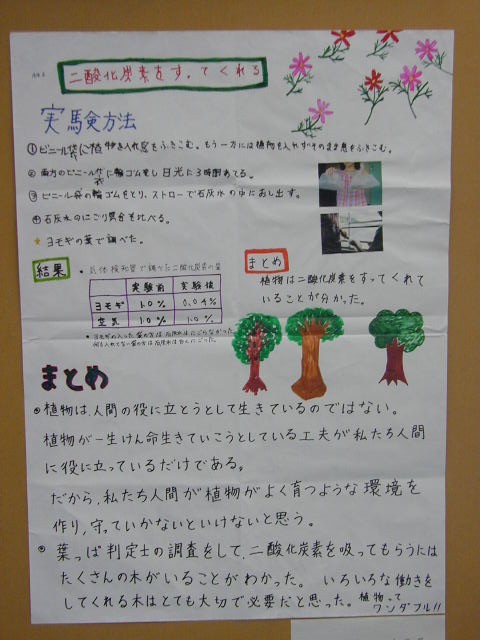 二酸化炭素をすってくれる
実験方法
①ビニール袋に植物を入れ息をふきこむ。もう一方には植物を入れずそのまま息をふきこむ。
②両方のビニール袋に輪ゴムをし日光に3時間あてる。
③ビニール袋の輪ゴムをとり、ストローで石灰水の中におし出す。
④石灰水のにごり具合を比べる。
★ヨモギの葉で調べた。
結果
気体検知管で調べた二酸化炭素の量
実験前 実験後
ヨモギ 1.0% 0.04%
空気 1.0% 1.0%
ヨモギの入った袋の方は石灰水はにごらなかった。
何も入れてない袋の方は石灰水は白くにごった。
まとめ
植物は二酸化炭素をすってくれて
いることが分かった。
まとめ
植物は、人間の役に立とうとして生きているのではない。
植物が一生けん命生きていこうとしている工夫が私たち人間
に役に立っているだけである。
だから、私たち人間が植物がよく育つような環境を
作り、守っていかないといけないと思う。
葉っぱ判定士の調査をして、二酸化炭素を吸ってもらうには
たくさんの木がいることがわかった。 いろいろな働きを
してくれる木はとても大切で必要だと思った。植物って
ワンダフル!!